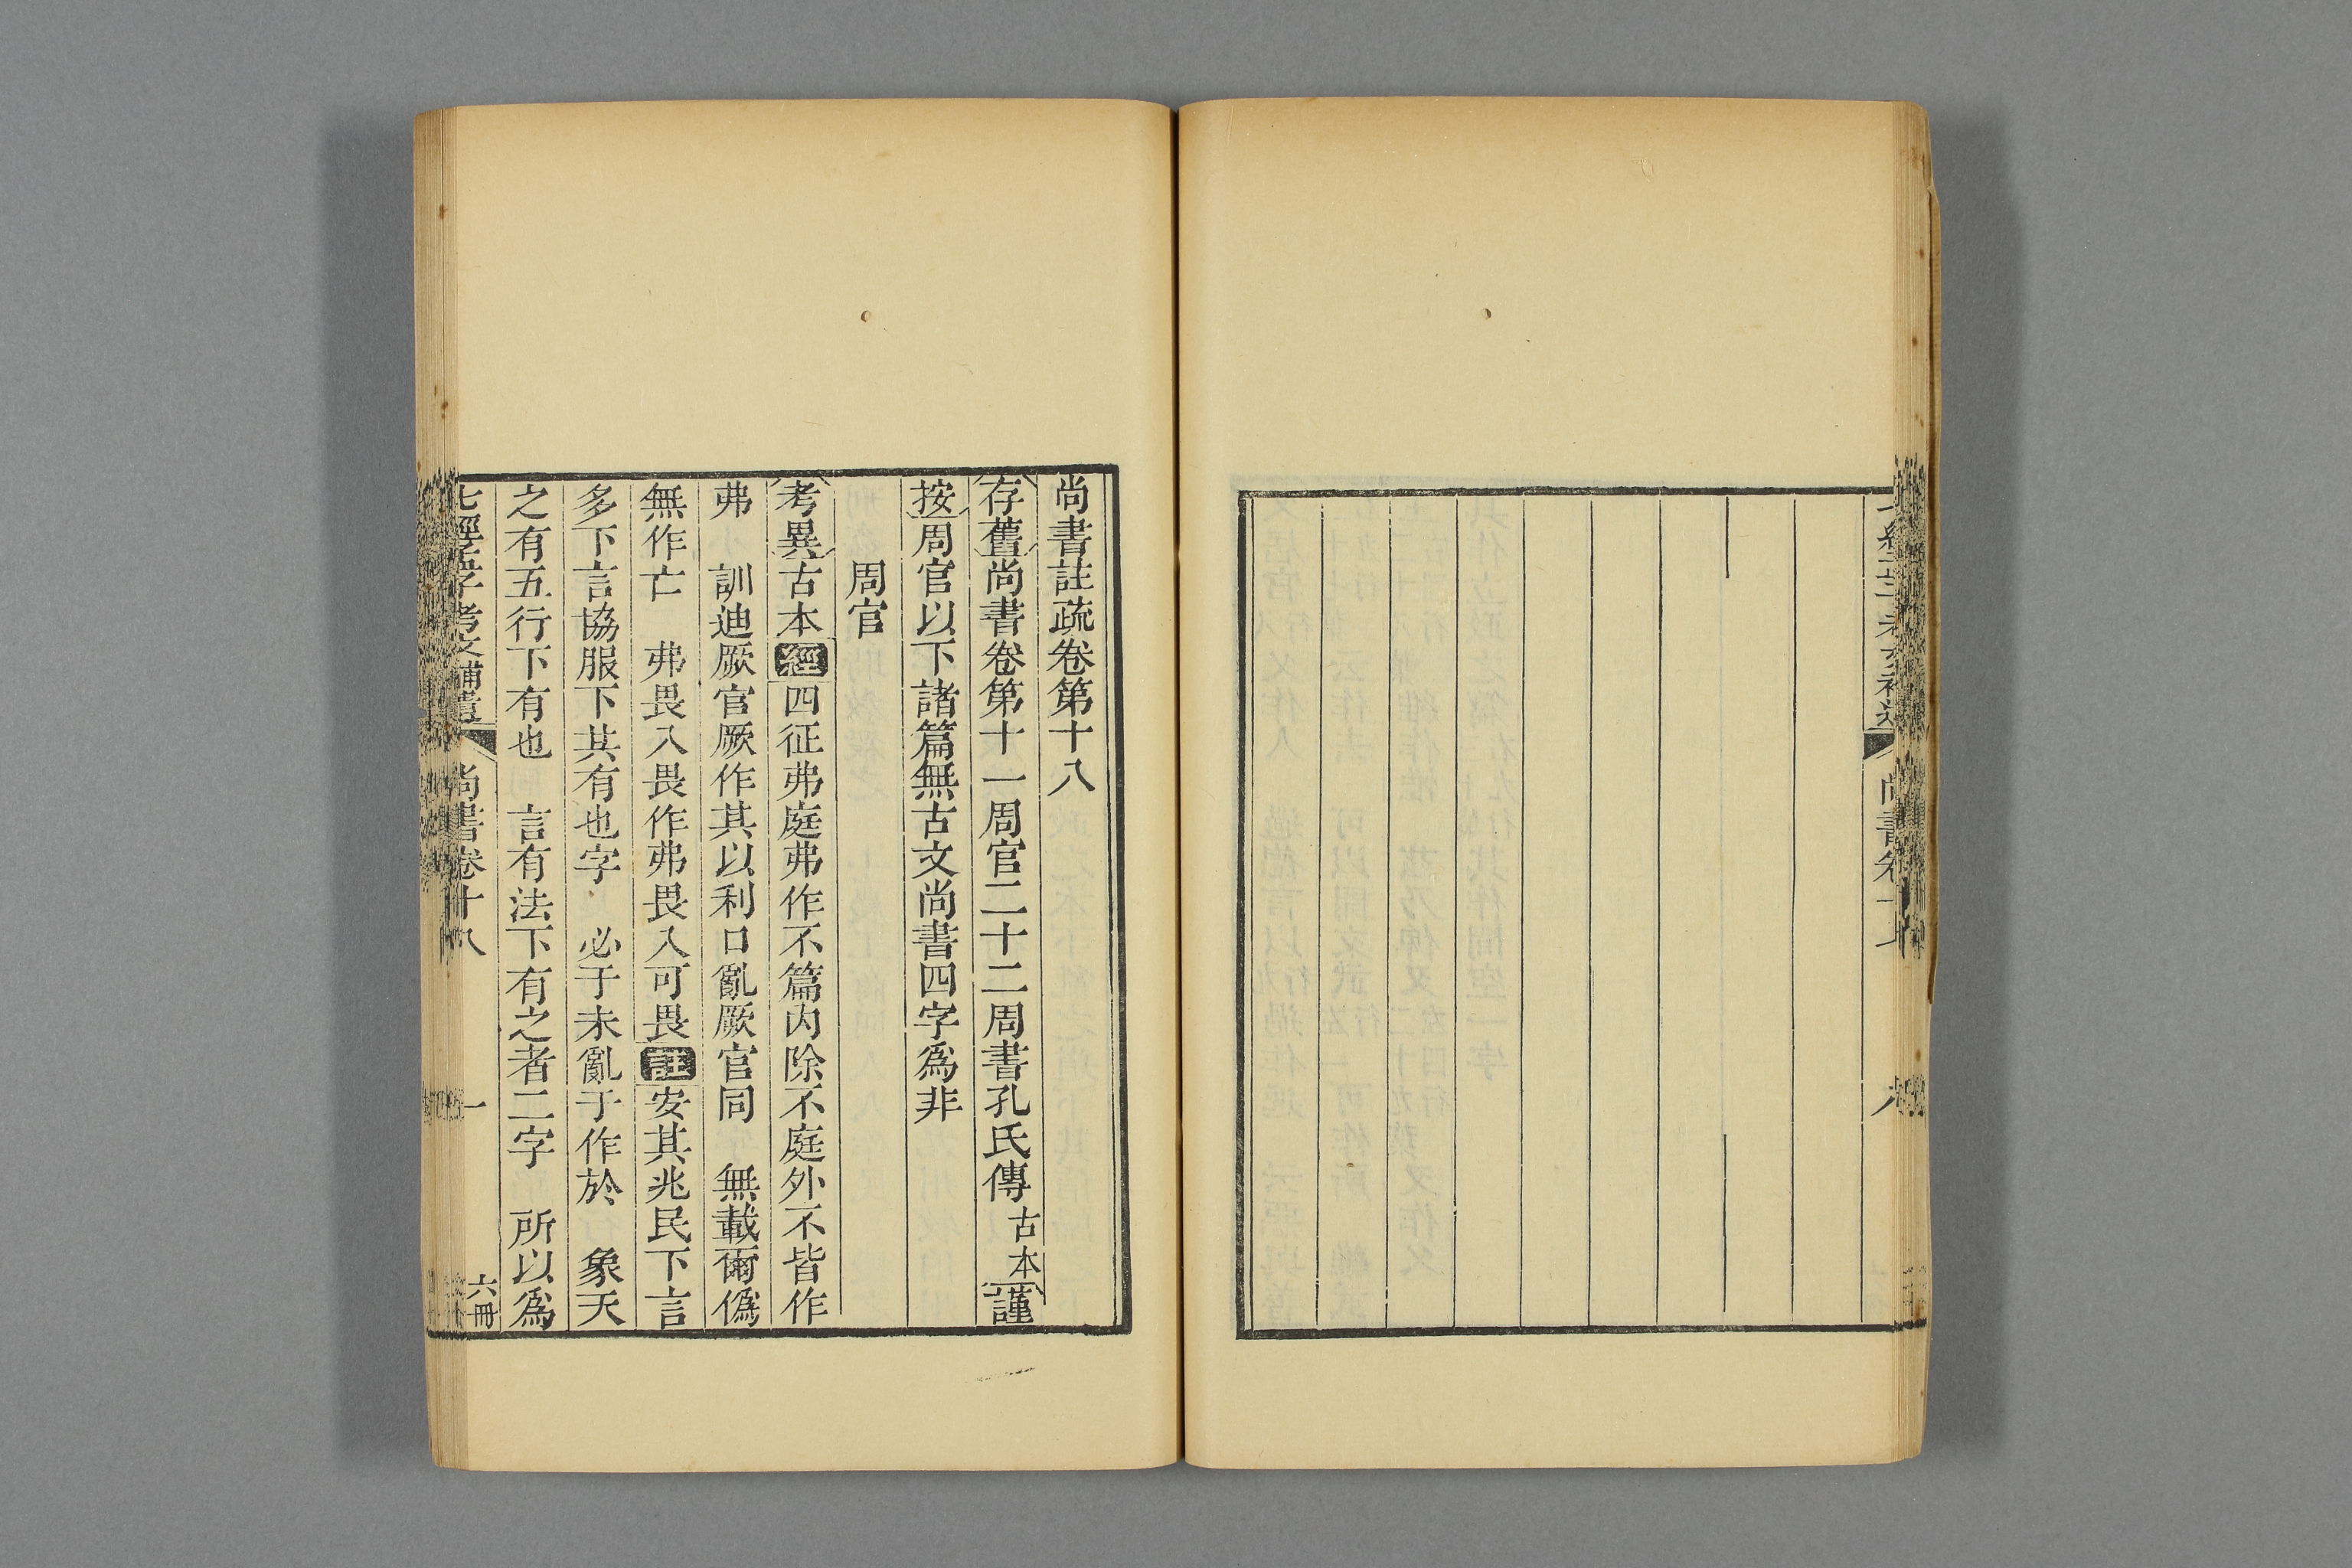 尚書註疏卷第十八
存舊尚書卷第十一周官二十二周書孔氏傳古本謹
按周官以下諸篇無古文尚書四字爲非
周官
考異古本經四征弗庭弗作不篇內除不庭外不皆作
弗 訓迪厥官厥作其以利口亂厥官同 無載爾僞
無作亡 弗畏入畏作弗畏入可畏註安其兆民下言
多下言協服下其有也字 必于未亂于作於 象天
之有五行下有也 言有法下有之者二字 所以爲
七經孟子考文補遺 尚書卷十八 一 六冊